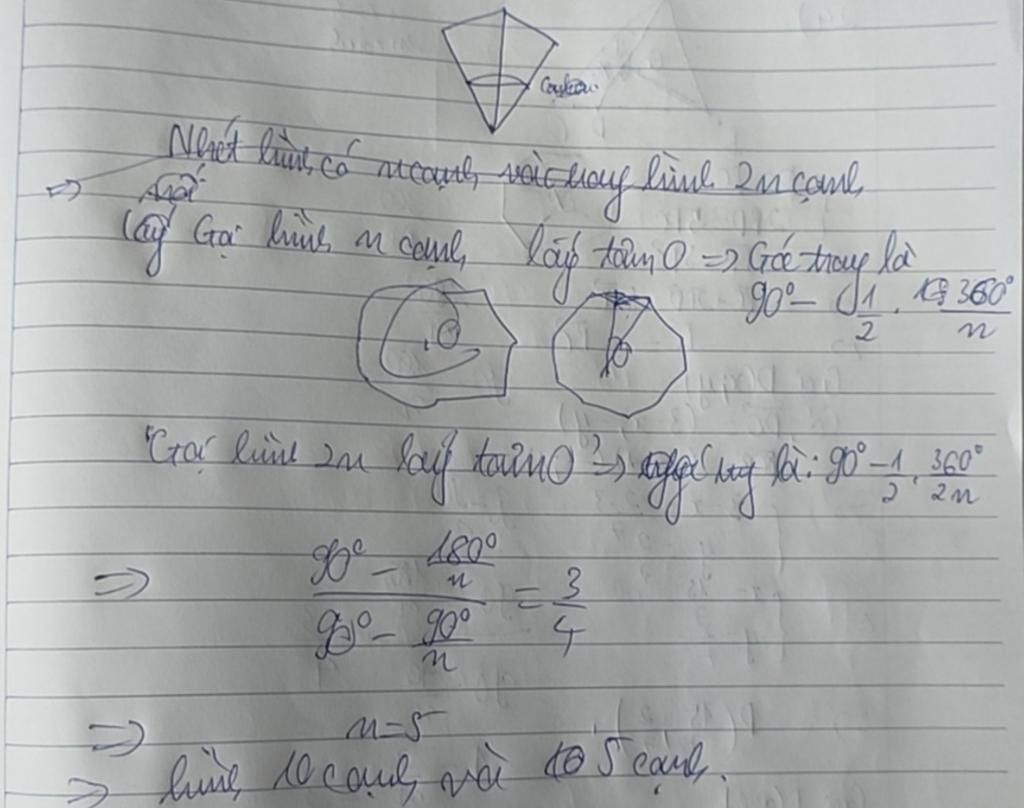 Nhét hình có n cạnh vào trong hình 2n cạnh
=>
Lấy Gọi hình n cạnh lấy tâm O => Góc trong là
90° - 1/2 . 360°/n
O
O
Gọi hình 2n lấy tâm O => góc trong là: 90° - 1/2 . 360°/2n
=> (90° - 180°/n) / (90° - 90°/n) = 3/4
=> n = 5
=> hình 10 cạnh và 5 cạnh.